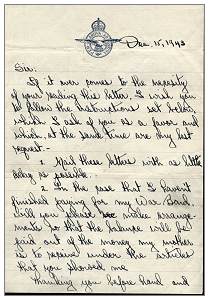 Dec. 15, 1943
Sir:
If it ever comes to the necessity
of your reading this letter, I wish you
to follow the instructions set below,
which I ask of you as a favor and
which, at the same time are my last
request.-
1. Mail these letters with as little
delay as possible.
2. In the case that I haven't
finished paying for my War Bond.
Will you please make arrange-
ments so that the balance will be
paid out of the money my mother
is to receive under the articles
that you showed me.
Thanking you before hand and